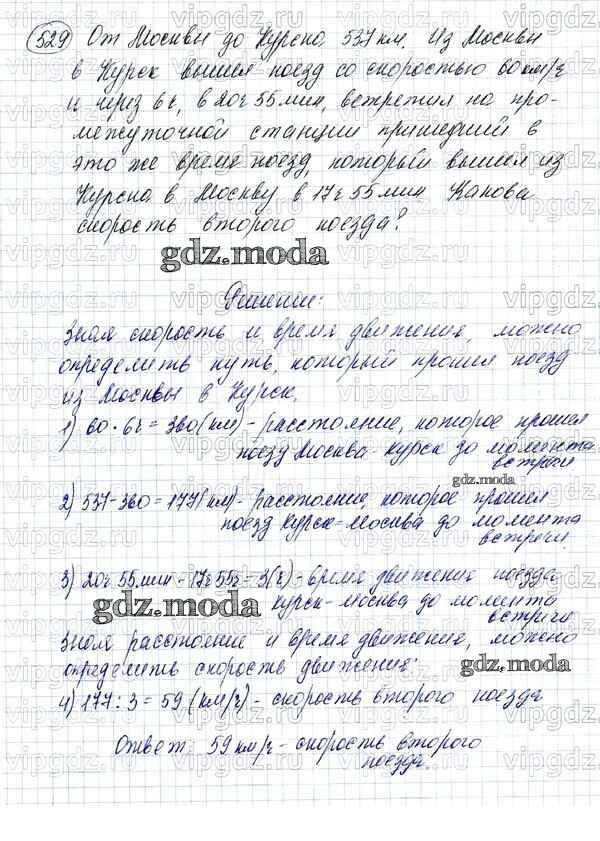 529 От Москвы до Курска 537 км. Из Москвы
в Курск вышел поезд со скоростью 60 км/ч
и через 6ч, в 20ч 55 мин, встретил на про-
межуточной станции пришедший в
это же время поезд, который вышел из
Курска в Москву в 17ч 55 мин Какова
скорость второго поезда?
gdz.moda
Решении:
Зная скорость и время движения, можно
определить путь, который прошел поезд
из Москвы в Курск.
1) 60 · 6ч = 360 (км) - расстояние, которое прошел
поезд Москва - Курск до момента
встречи
gdz.moda
2) 537 - 360 = 177 (км) - расстояние, которое прошел
поезд Курск - Москва до момента
встречи.
3) 20ч 55 мин - 17ч 55ч = 3 (ч) - время движение поезда
Курск - Москва до момента
встречи
gdz.moda
Зная расстояние и время движение, можно
определить скорость движения:
gdz.moda
4) 177 : 3 = 59 (км/ч) - скорость второго поезда
Ответ: 59 км/ч - скорость второго
поезда.